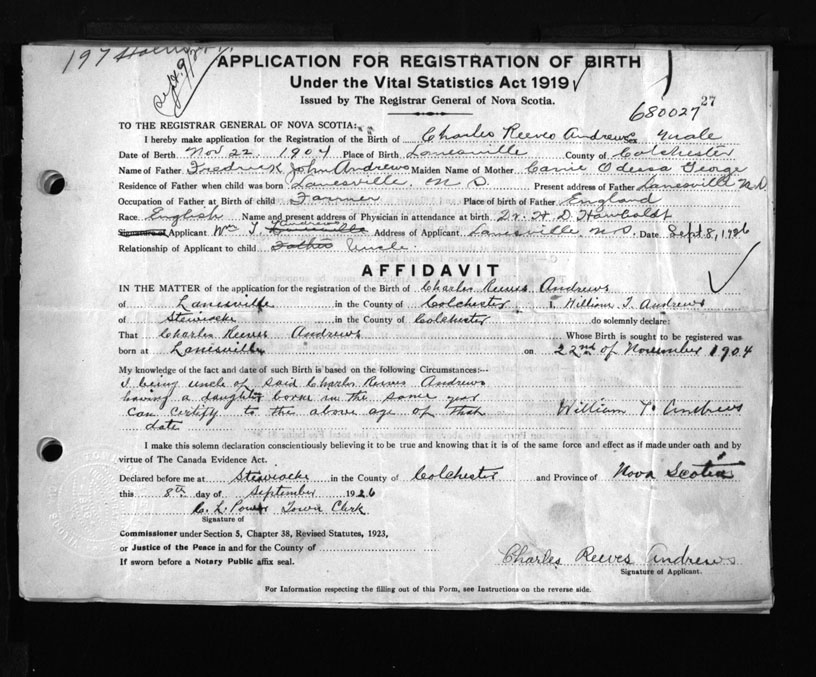 197
Sept. 9/26
APPLICATION FOR REGISTRATION OF BIRTH
Under the Vital Statistics Act 1919
Issued by The Registrar General of Nova Scotia.
27
680027
TO THE REGISTRAR GENERAL OF NOVA SCOTIA:
I hereby make application for the Registration of the Birth of Charles Reeves Andrews Sex Male
Date of Birth Nov 22 1904 Place of Birth Lanesville County of Colchester
Name of Father Fredrick John Andrews Maiden Name of Mother Carrie Odessa George
Residence of Father when child was born Lanesville, N S. Present address of Father Lanesville N.S.
Occupation of Father at Birth of child Farmer Place of birth of Father England
Race English Name and present address of Physician in attendance at birth Dr. H. D.
Signature of Applicant Wm T. Andrews Address of Applicant Lanesville N.S. Date Sept 8, 1926
Relationship of Applicant to child Father Uncle.
AFFIDAVIT
IN THE MATTER of the application for the registration of the Birth of Charles Reeves Andrews
of Lanesville in the County of Colchester I, William T. Andrews
of Stewiacke in the County of Colchester do solemnly declare:
That Charles Reeves Andrews Whose Birth is sought to be registered was
born at Lanesville on 22nd of November 1904
My knowledge of the fact and date of such Birth is based on the following Circumstances:—
I being uncle of said Charles Reeves Andrews
having a daughter borne in the same year
can certify to the above age of that
date William T. Andrews
I make this solemn declaration conscientiously believing it to be true and knowing that it is of the same force and effect as if made under oath and by
virtue of The Canada Evidence Act.
Declared before me at Stewiacke in the County of Colchester and Province of Nova Scotia
this 8th day of September 1926
C. L. Power Town Clerk
Signature of
Commissioner under Section 5, Chapter 38, Revised Statutes, 1923,
or Justice of the Peace in and for the County of
If sworn before a Notary Public affix seal.
Charles Reeves Andrews
Signature of Applicant.
For Information respecting the filling out of this Form, see Instructions on the reverse side.